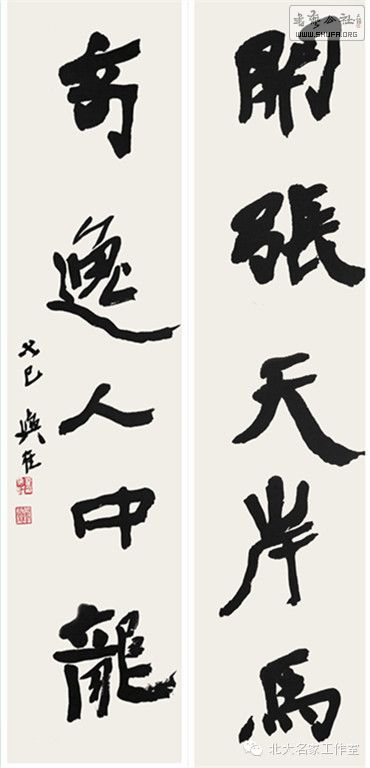 書藝公社
WWW.SHUFA.ORG
開張天岸馬
奇逸人中龍
癸巳
北大名家工作室